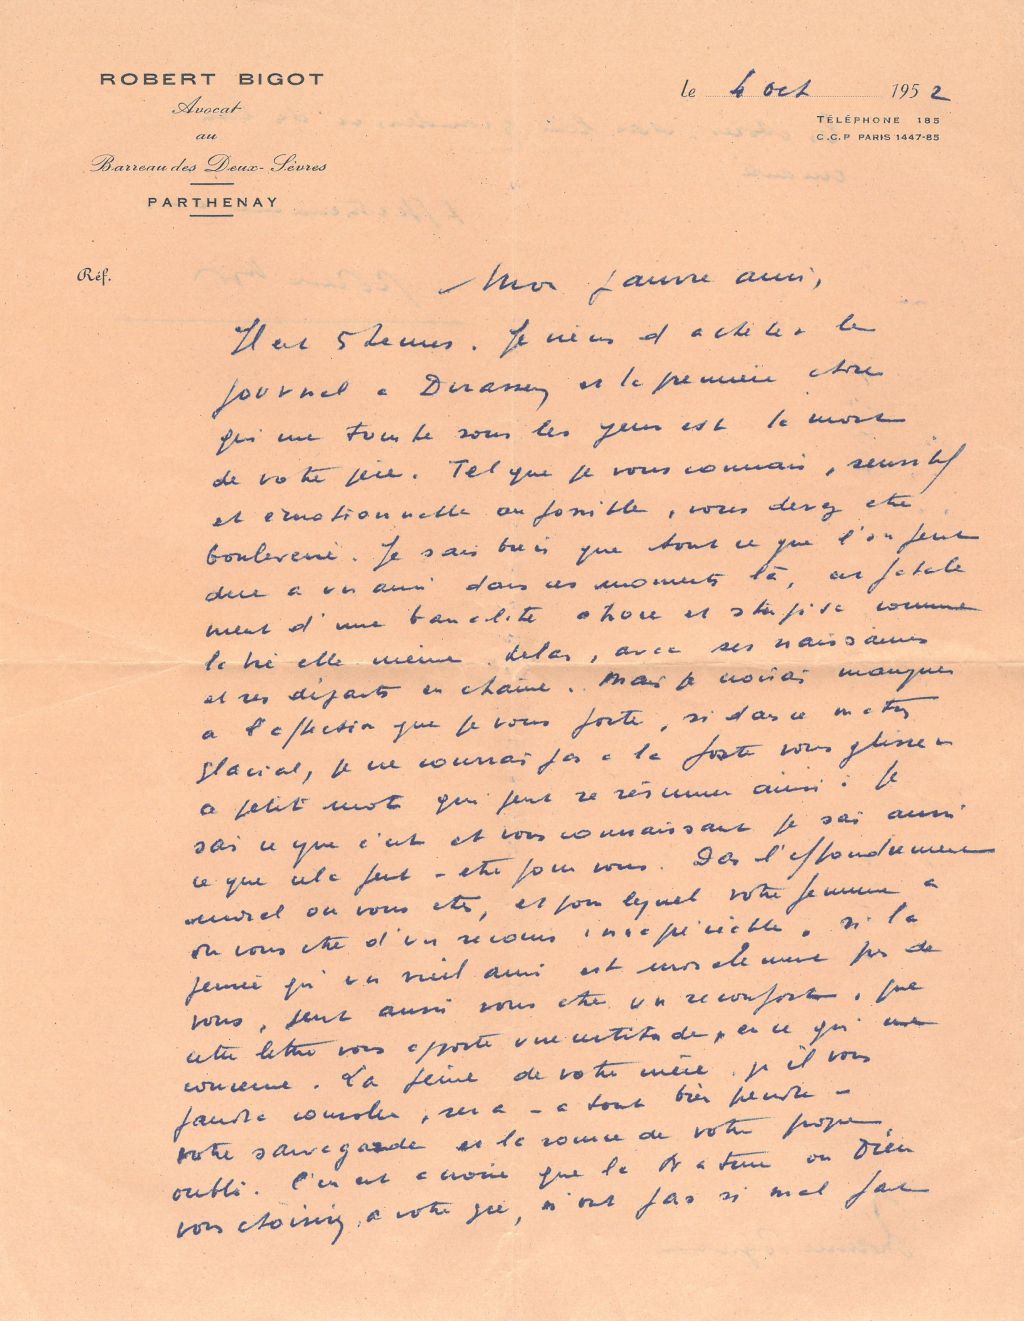 ROBERT BIGOT
Avocat
au
Barreau des Deux-Sèvres
PARTHENAY
le 4 Oct 1952
TÉLÉPHONE 185
C.C.P PARIS 1447-85
Réf.
Mon pauvre ami,
Il est 5 heures. Je viens d'acheter le
journal a et la première chose
qui me tombe sous les yeux est la mort
de votre père. Tel que je vous connais, sensitif
et émotionnable au possible, vous devez être
bouleversé. Je sais bien que tout ce que l'on peut
dire a un ami dans ces moments là, est fatale
ment d'une banalité atroce et stupide comme
la vie elle même hélas, avec ses naissances
et ses départs en chaine. Mais je croirais manquer
a l'affection que je vous porte, si dans ce matin
glacial, je ne courrais pas a la poste vous glisser
a petit mot qui peut se résumer ainsi : Je
sais ce que c'est et vous connaissant je sais aussi
ce que cela peut-etre pour vous. Dans l'effondrement
moral ou vous etes, et pour lequel votre femme a
du vous etre d'un secours inappréciable, si la
pensée qu'un vieil ami est moralement près de
vous, peut aussi vous etre un réconfort, que
cette lettre vous apporte une certitude, en ce qui me
concerne. La peine de votre mère qu'il vous
faudra consoler, sera - a tout bien prendre -
votre sauvegarde et la source de votre propre
oubli. C'en est a croire que la Nature ou Dieu
vous choisirez a votre gré, n'ont pas si mal fait